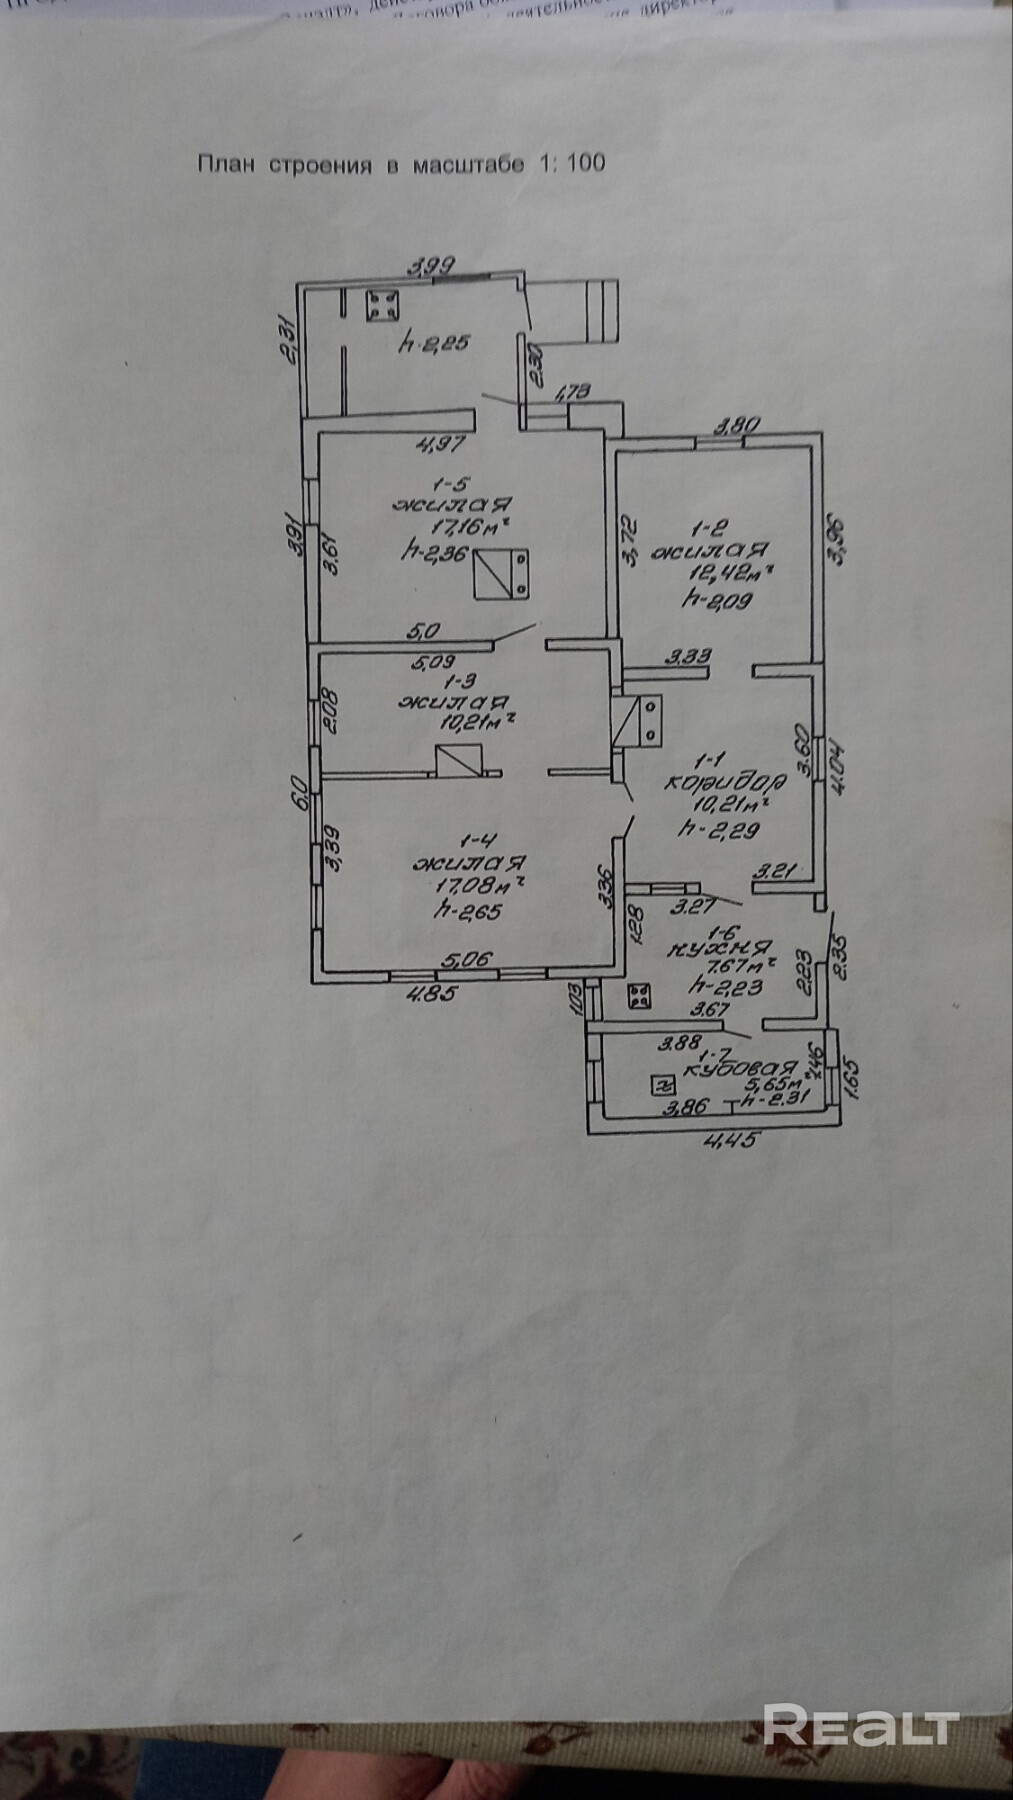 План строения в масштабе 1:100
3,99
2,31
h-2,25
2.30
1,73
4,97
3.80
1-5
жилая
17,16м²
h-2,36
3,91
3,61
3,72
1-2
жилая
12,42м²
h-2,09
3,96
5,0
5,09
3.33
1-3
жилая
10,21м²
2.08
1-1
коридор
10,21м²
h-2,29
3.60
4.04
6,0
3,39
1-4
жилая
17,08м²
h-2,65
3.36
3.21
3.27
1.28
1-6
кухня
7.67м²
h-2,23
2.23
2.35
5,06
4.85
1.03
3.67
3.88
1-7
кубовая
5,65м²
h-2.31
1.46
1.65
3,86
4,45
REALT